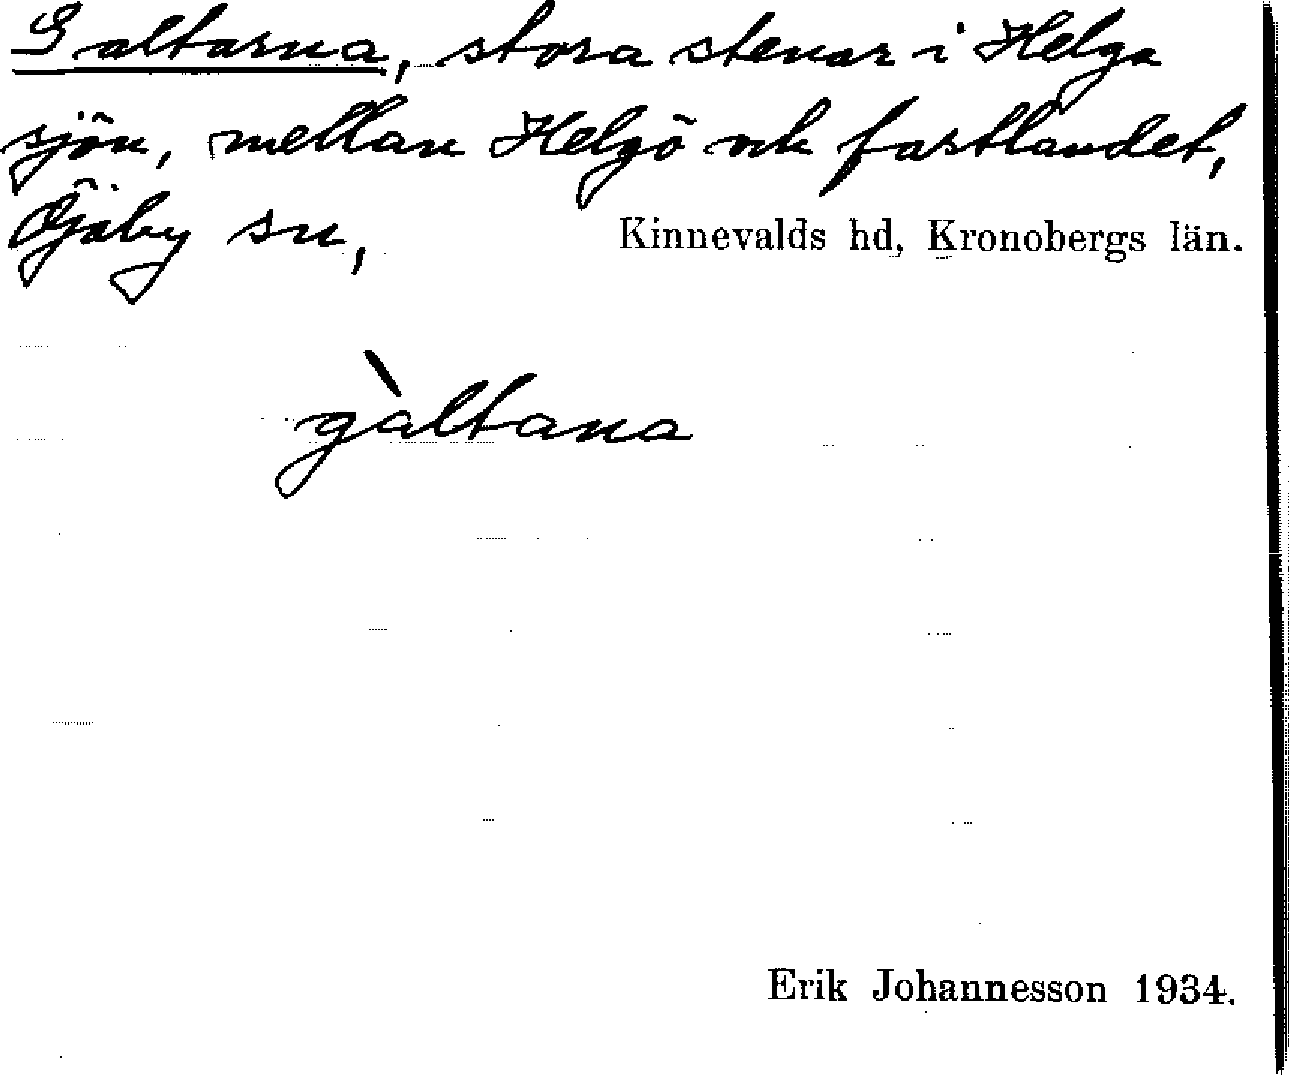 Galtarna, stora stenar i Helga
sjön, mellan Helgö och fastlandet,
Öjaby sn,
Kinnevalds hd, Kronobergs län.
gàltana
Erik Johannesson 1934.